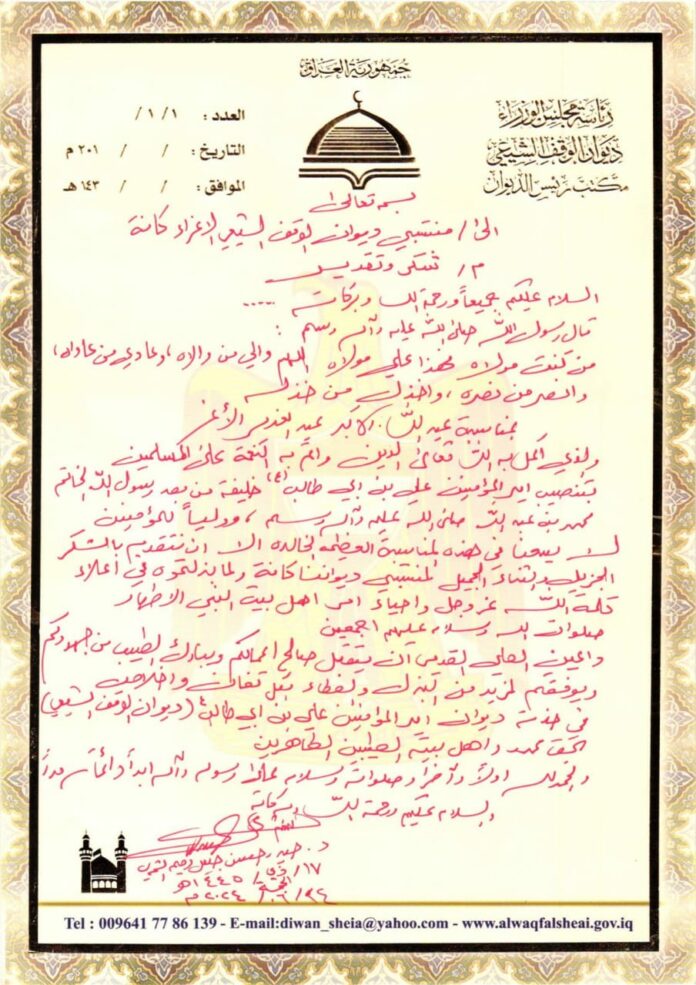 جمهورية العراق
رئاسة مجلس الوزراء
ديوان الوقف الشيعي
مكتب رئيس الديوان
العدد : ١/ ١/
التاريخ : / / ٢٠١ م
الموافق : / / ١٤٣ هـ
بسمه تعالى
الى / منتسبي ديوان الوقف الشيعي الاعزاء كافة
م / شكر وتقدير
السلام عليكم جميعاً ورحمة الله وبركاته .....
قال رسول الله صلى الله عليه وآله وسلم :
من كنت مولاه فهذا علي مولاه اللهم والي من والاه ، وعادي من عاداه ،
وانصر من نصره ، واخذل من خذله
بمناسبة عيد الله الاكبر عيد الغدير الأغر
والذي اكمل به الله تعالى الدين واتم به النعمة على المسلمين
بتنصيب امير المؤمنين علي بن ابي طالب (ع) خليفة من بعد رسول الله الخاتم
محمد بن عبد الله صلى الله عليه وآله وسلم ، وولياً للمؤمنين
لا يسعنا في هذه المناسبة العظيمة الخالده الا ان نتقدم بالشكر
الجزيل والثناء الجميل لمنتسبي ديواننا كافة ولما بذلتموه في اعلاء
كلمة الله عز وجل واحياء امر اهل بيت النبي الاطهار
صلوات الله وسلامه عليهم اجمعين
داعين العلي القدير ان يتقبل صالح اعمالكم ويبارك الطيب من جهودكم
ويوفقكم لمزيد من البذل والعطاء بكل تفان واخلاص
في خدمة ديوان امير المؤمنين علي بن ابي طالب (ديوان الوقف الشيعي)
بحق محمد واهل بيته الطيبين الطاهرين
والحمد لله اولاً وآخراً وصلواته وسلامه على رسوله وآله ابداً دائماً
والسلام عليكم ورحمة الله وبركاته
د. حيدر حسن
١٧ / ذي الحجة / ١٤٤٥ هـ
٢٤ / ٦ / ٢٠٢٤ م
Tel : 009641 77 86 139 - E-mail:diwan_sheia@yahoo.com - www.alwaqfalsheai.gov.iq